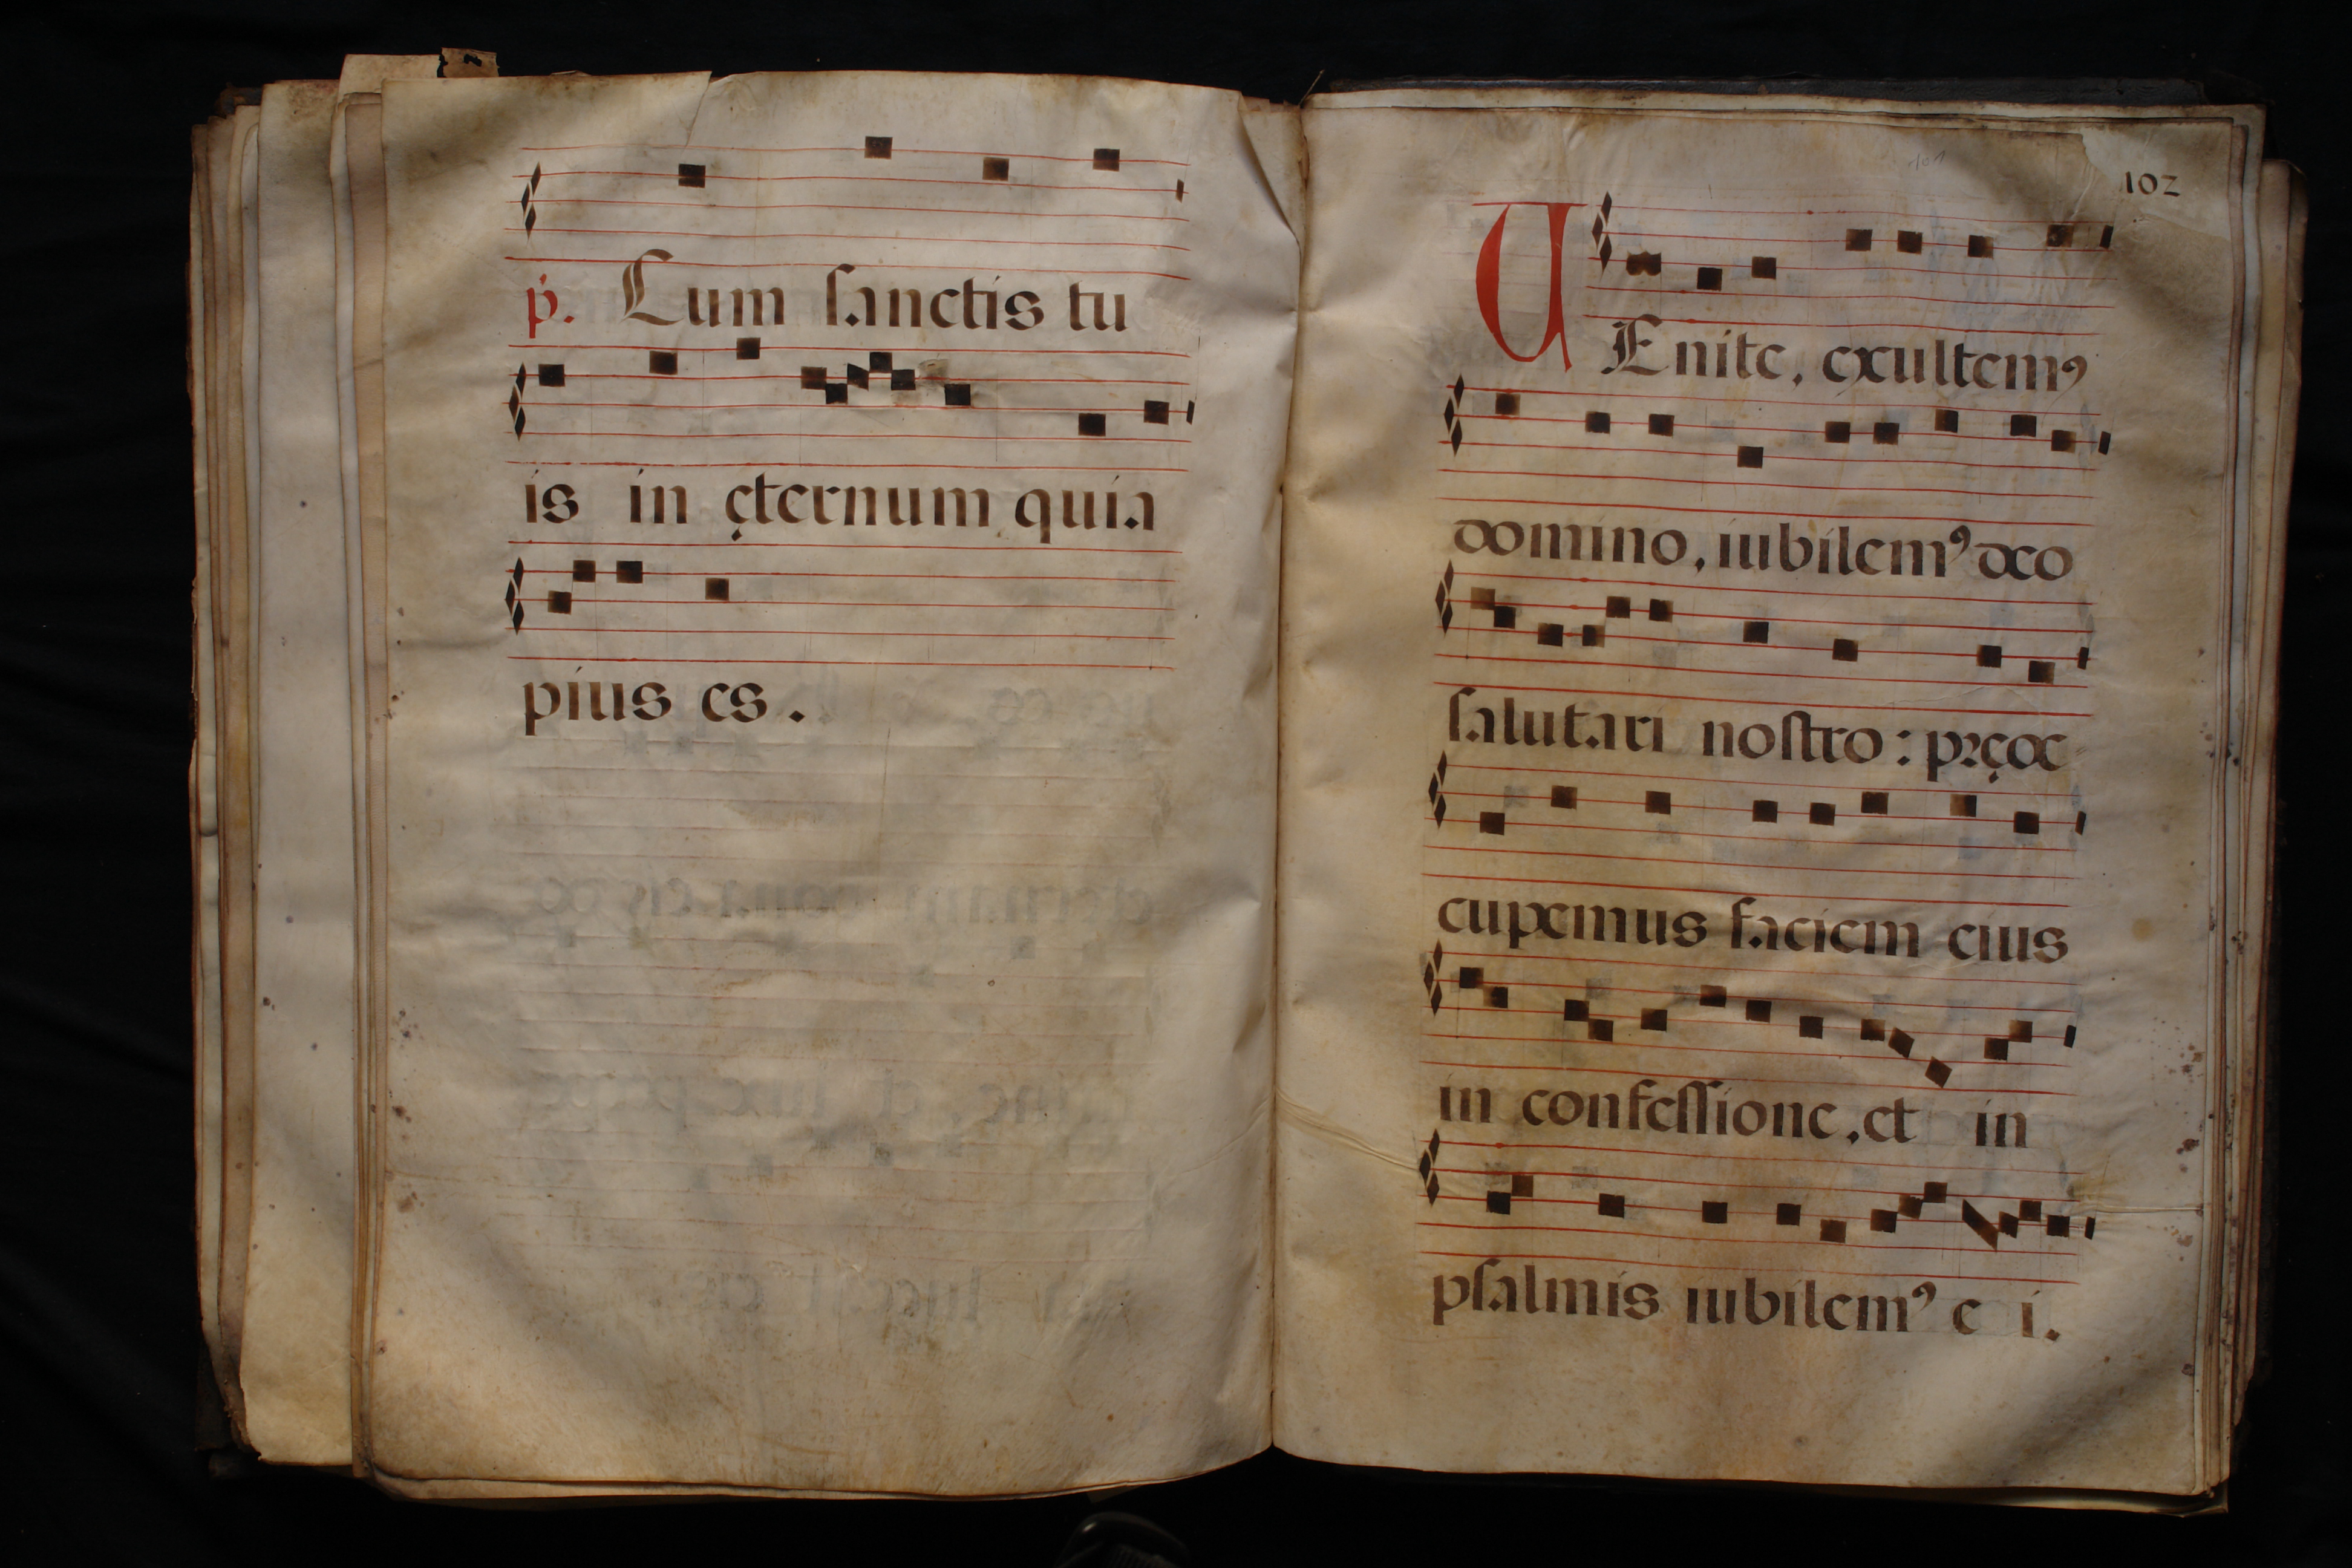 p. Cum sanctis tu
is in ęternum quia
pius es.
102
VEnite, exultemꝰ
domino, iubilemꝰ deo
salutari nostro: pręoc
cupemus faciem eius
in confessione, et in
psalmis iubilemꝰ e i.